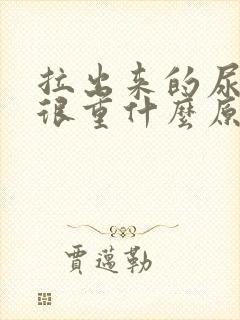 拉出来的尿
很重什麼原
賈邁勒